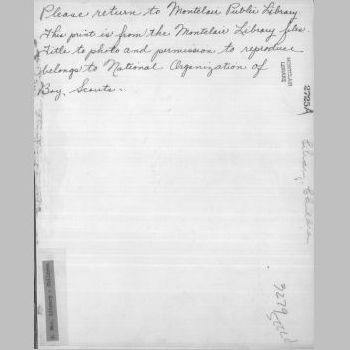 Please return to Montclair Public Library
This print is from the Montclair Library files.
Title to photo and permission to reproduce
belongs to National Organization of
Boy Scouts.
MONTCLAIR
LIBRARY
2725A
9279